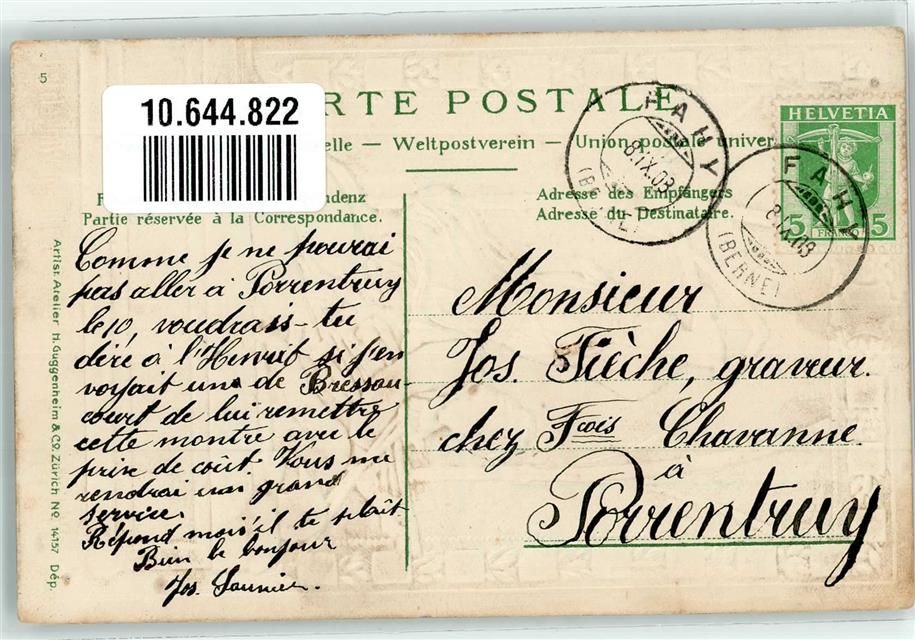 5
10.644.822
RTE POSTALE
elle — Weltpostverein — Union postale univer
denz
Partie réservée à la Correspondance.
Adresse des Empfängers
Adresse du Destinataire.
HELVETIA
5 FRANCO 5
FAHY
8.IX.09
(BERNE)
FAHY
8.IX.09
(BERNE)
Comme je ne pourai
pas aller à Porrentruy
le 10, voudrais-tu
dire à l'Henrit si j'en
voyait une de Bressau-
court de lui remettre
cette montre avec le
prix de coût. Vous me
rendrai un grand
service.
Répond mois s'il te plait
Bien le bonjour
Jos. Saunier.
Monsieur
Jos. Fièche, graveur.
chez Fcois Chavanne
à
Porrentruy
Artist. Atelier H. Guggenheim & Co. Zürich No. 14157 Dép.